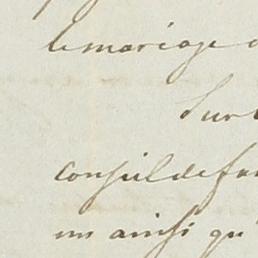 le mariage
Sur
conseil de fa
un ainsi qu'